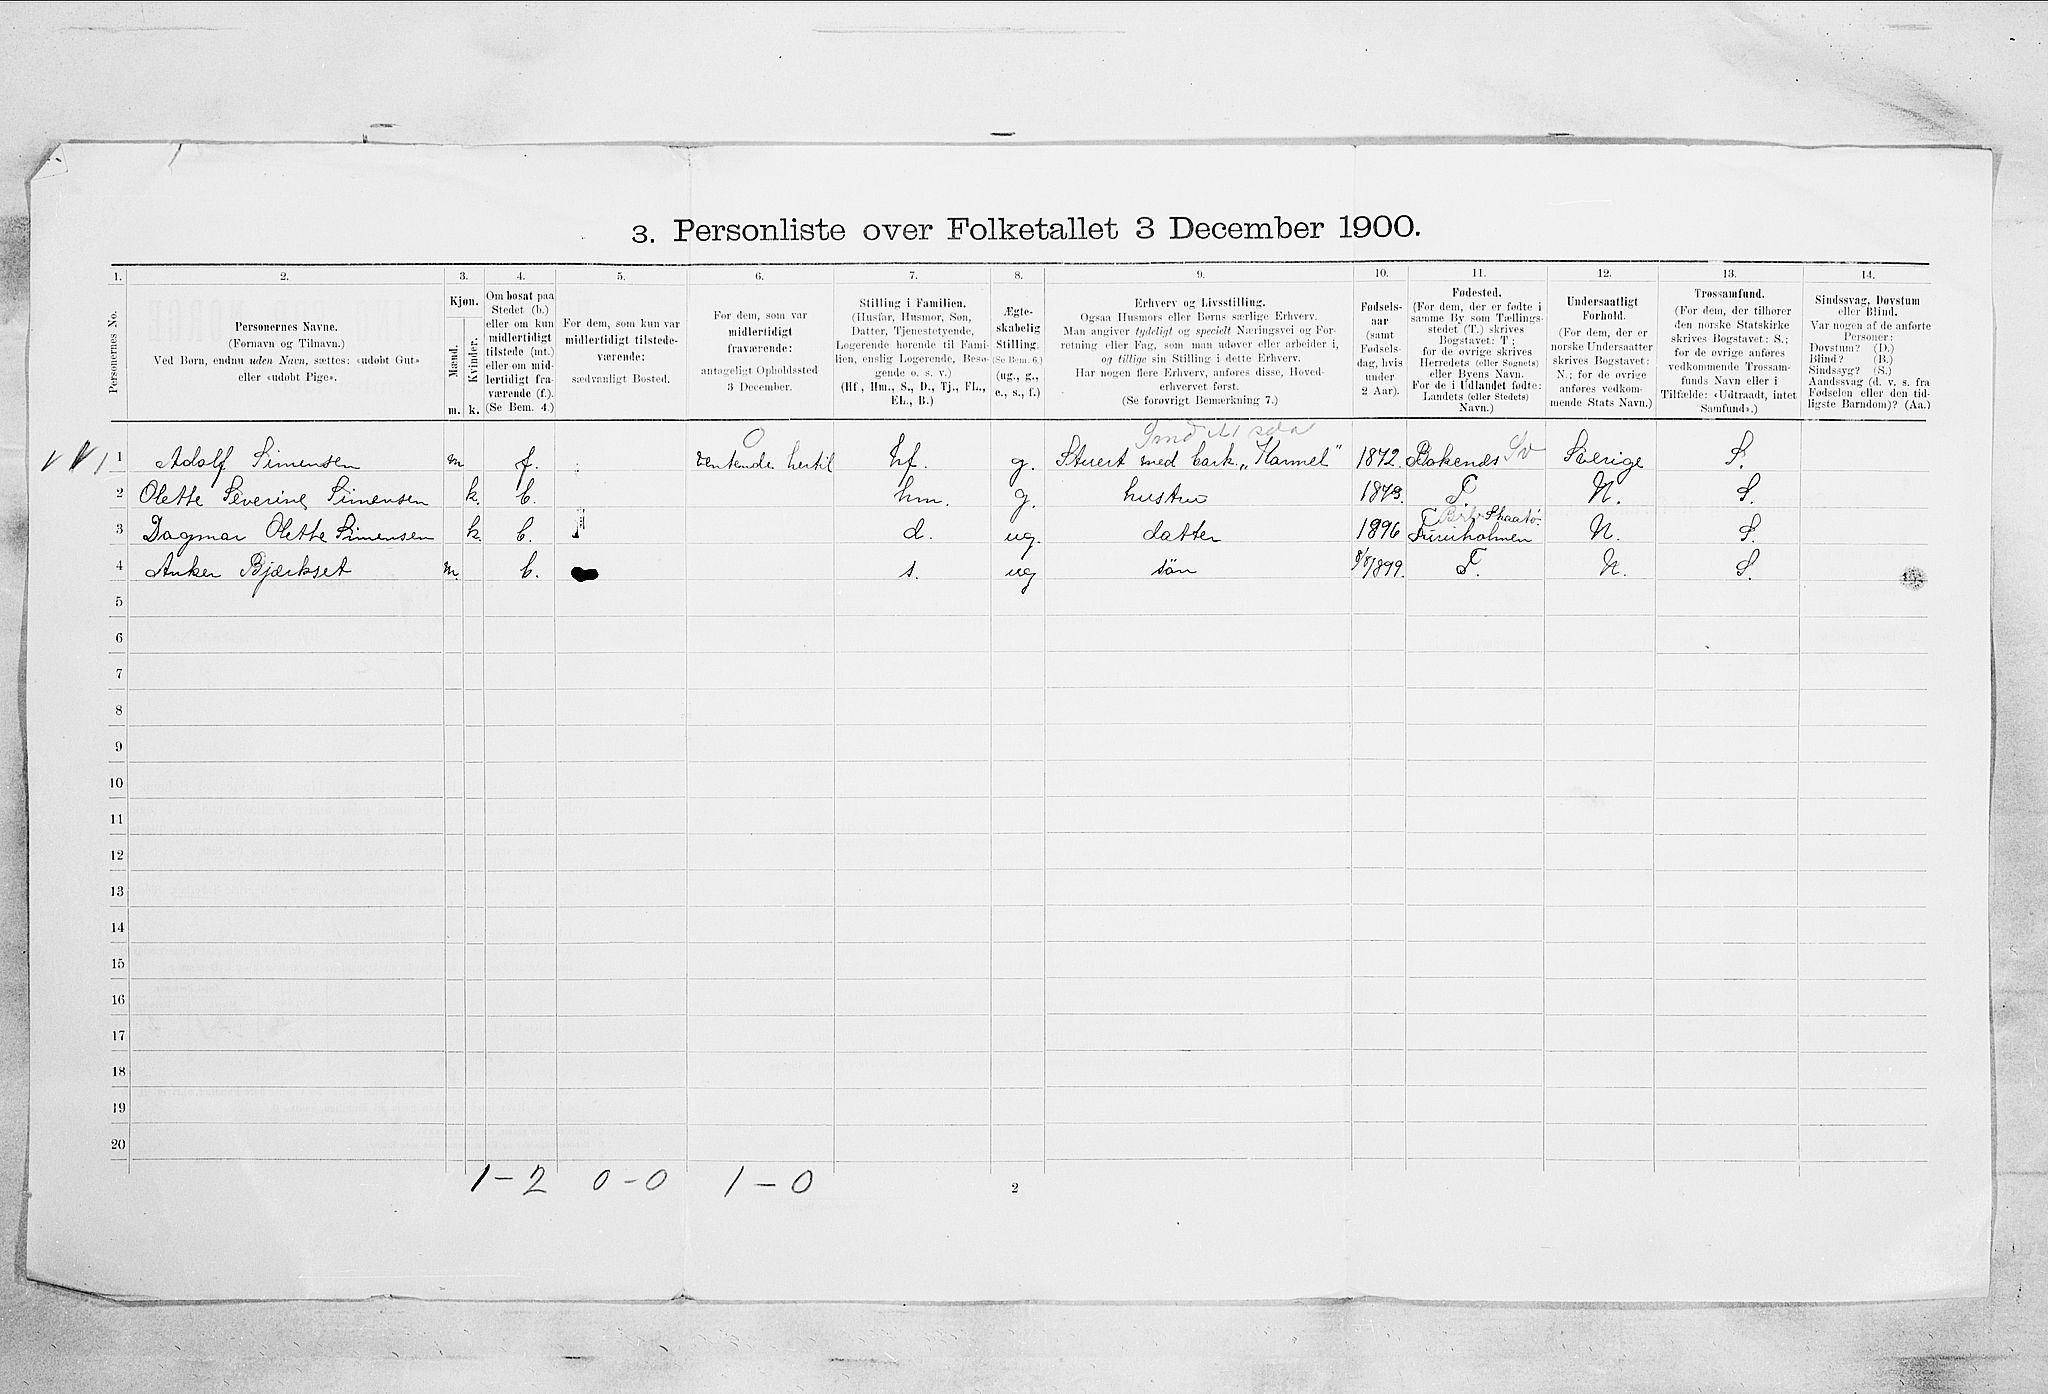 3. Personliste over Folketallet 3 December 1900.
1. 2. 3. 4. 5. 6. 7. 8. 9. 10. 11. 12. 13. 14.
Personernes No.
Personernes Navne.
(Fornavn og Tilnavn.)
Ved Børn, endnu uden Navn, sættes: «udøbt Gut»
eller «udøbt Pige».
Kjøn.
Mænd.
Kvinder.
m. k.
Om bosat paa
Stedet (b.)
eller om kun
midlertidigt
tilstede (mt.)
eller om mid-
lertidigt fra-
værende (f.).
(Se Bem. 4.)
For dem, som kun var
midlertidigt tilstede-
værende:
sædvanligt Bosted.
For dem, som var
midlertidigt
fraværende:
antageligt Opholdssted
3 December.
Stilling i Familien.
(Husfar, Husmor, Søn,
Datter, Tjenestetyende,
Logerende hørende til Fami-
lien, enslig Logerende, Besø-
gende o. s. v.)
(Hf., Hm., S., D., Tj., FL.,
EL., B.)
Ægte-
skabelig
Stilling.
(Se Bem. 6.)
(ug., g.,
e., s., f.)
Erhverv og Livsstilling.
Ogsaa Husmors eller Børns særlige Erhverv.
Man angiver tydeligt og specielt Næringsvei og For-
retning eller Fag, som man udøver eller arbeider i,
og tillige sin Stilling i dette Erhverv.
Har nogen flere Erhverv, anføres disse, Hoved-
erhvervet først.
(Se forøvrigt Bemærkning 7.)
Fødsels-
aar
(samt
Fødsels-
dag, hvis
under
2 Aar).
Fødested.
(For dem, der er fødte i
samme By som Tællings-
stedet (T.) skrives
Bogstavet: T;
for de øvrige skrives
Herredets (eller Sognets)
eller Byens Navn.
For de i Udlandet fødte:
Landets (eller Stedets)
Navn.)
Undersaatligt
Forhold.
(For dem, der er
norske Undersaatter
skrives Bogstavet:
N.; for de øvrige
anføres vedkom-
mende Stats Navn.)
Trossamfund.
(For dem, der tilhører
den norske Statskirke
skrives Bogstavet: S.;
for de øvrige anføres
vedkommende Trossam-
funds Navn eller i
Tilfælde: «Udtraadt, intet
Samfund».)
Sindssvag, Døvstum
eller Blind.
Var nogen af de anførte
Personer:
Døvstum? (D.)
Blind? (B.)
Sindssyg? (S.)
Aandssvag (d. v. s. fra
Fødselen eller den tid-
ligste Barndom)? (Aa.)
1 Adolf Simensen m f. 0 ventende hertil hf. g. Stuert med bark „Karmel" 1872. Bokenäs Sv Sverige S.
2 Olette Severine Simensen k. b. hm. g. hustru 1873. T N. S.
3 Dagmar Olette Simensen k. b. d. ug. datter 1896 Furuholmen Skaatø N. S.
4 Anker Bjærkset m. b. s. ug søn 8/8 1899. T. N. S.
5
6
7
8
9
10
11
12
13
14
15
16
17
18
19
20
1-2 0-0 1-0
2